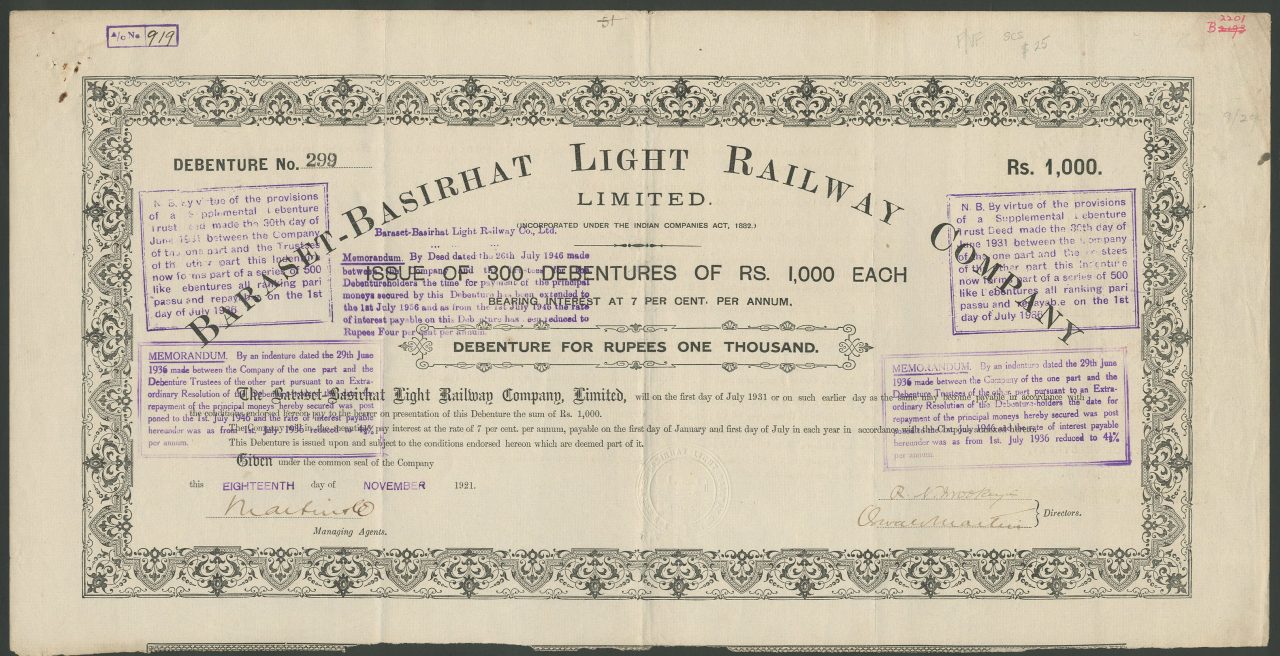 A/c No 919
31
2201
B
F/VF. SCS
$25
DEBENTURE No. 299
BARASET-BASIRHAT LIGHT RAILWAY COMPANY
LIMITED.
Rs. 1,000.
(INCORPORATED UNDER THE INDIAN COMPANIES ACT, 1882.)
N. B. By virtue of the provisions
of a Supplemental Debenture
Trust Deed made the 30th day of
June 1931 between the Company
of the one part and the Trustees
of the other part this Indenture
now forms part of a series of 500
like Debentures all ranking pari
passu and repayable on the 1st
day of July 1936
Baraset-Basirhat Light Railway Co., Ltd.
Memorandum. By Deed dated the 26th July 1946 made
between the Company and the Trustees for the
Debentureholders the time for payment of the principal
moneys secured by this Debenture has been extended to
the 1st July 1956 and as from the 1st July 1946 the rate
of interest payable on this Debenture has been reduced to
Rupees Four per cent per annum.
N. B. By virtue of the provisions
of a Supplemental Debenture
Trust Deed made the 30th day of
June 1931 between the Company
of the one part and the Trustees
of the other part this Indenture
now forms part of a series of 500
like Debentures all ranking pari
passu and repayable on the 1st
day of July 1936
ISSUE OF 300 DEBENTURES OF RS. 1,000 EACH
BEARING INTEREST AT 7 PER CENT. PER ANNUM.
DEBENTURE FOR RUPEES ONE THOUSAND.
MEMORANDUM. By an indenture dated the 29th June
1936 made between the Company of the one part and the
Debenture Trustees of the other part pursuant to an Extra-
ordinary Resolution of the Debenture-holders the date for
repayment of the principal moneys hereby secured was post
poned to the 1st July 1946 and the rate of interest payable
hereunder was as from 1st. July 1936 reduced to 4½%
per annum.
MEMORANDUM. By an indenture dated the 29th June
1936 made between the Company of the one part and the
Debenture Trustees of the other part pursuant to an Extra-
ordinary Resolution of the Debenture-holders the date for
repayment of the principal moneys hereby secured was post
poned to the 1st July 1946 and the rate of interest payable
hereunder was as from 1st. July 1936 reduced to 4½%
per annum.
The Baraset-Basirhat Light Railway Company, Limited, will on the first day of July 1931 or on such earlier day as the same may become payable in accordance with
the conditions endorsed hereon pay to the bearer on presentation of this Debenture the sum of Rs. 1,000.
The Company will in the meantime pay interest at the rate of 7 per cent. per annum, payable on the first day of January and first day of July in each year in accordance with the Coupons annexed hereto.
This Debenture is issued upon and subject to the conditions endorsed hereon which are deemed part of it.
Given under the common seal of the Company
this EIGHTEENTH day of NOVEMBER 1921.
Martin & Co
Managing Agents.
Directors.